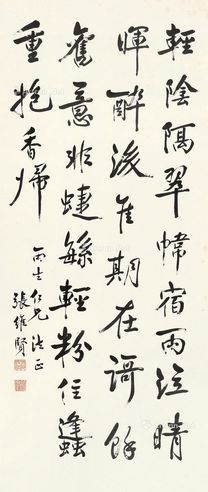 輕陰隔翠幃宿雨泣晴
暉醉後佳期在謌餘
舊意非蜨繇輕粉住蠭
重抱香歸
丙生仁兄法正
張維賢